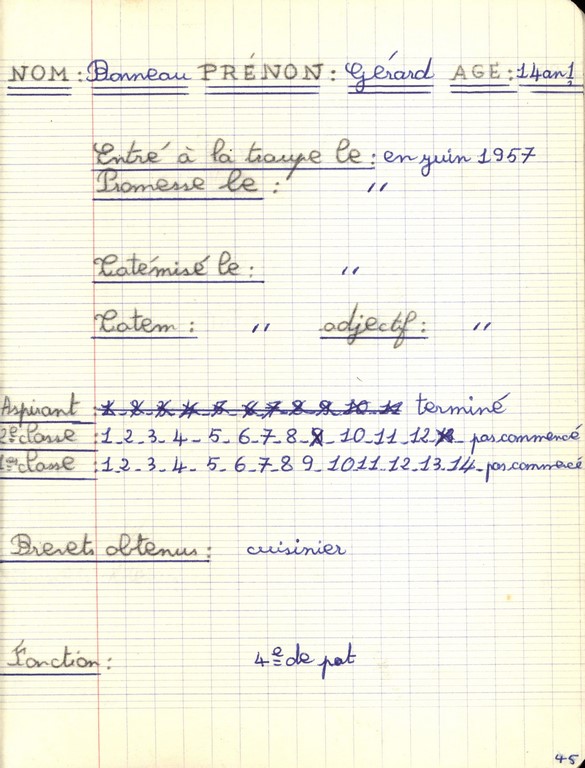 NOM : Bonneau PRÉNOM : Gérard AGE : 14 an ½
Entré à la troupe le : en juin 1957
Promesse le : "
Totémisé le : "
Totem : " adjectif : "
Aspirant : 1_2_3_4_5_6_7_8_9_10_11 terminé
2e classe : 1_2_3_4_5_6_7_8_9_10_11_12_ pas commencé
1ere classe : 1_2_3_4_5_6_7_8 9_10 11_12_13_14_ pas commencé
Brevets obtenus : cuisinier
Fonction : 4e de pat
45